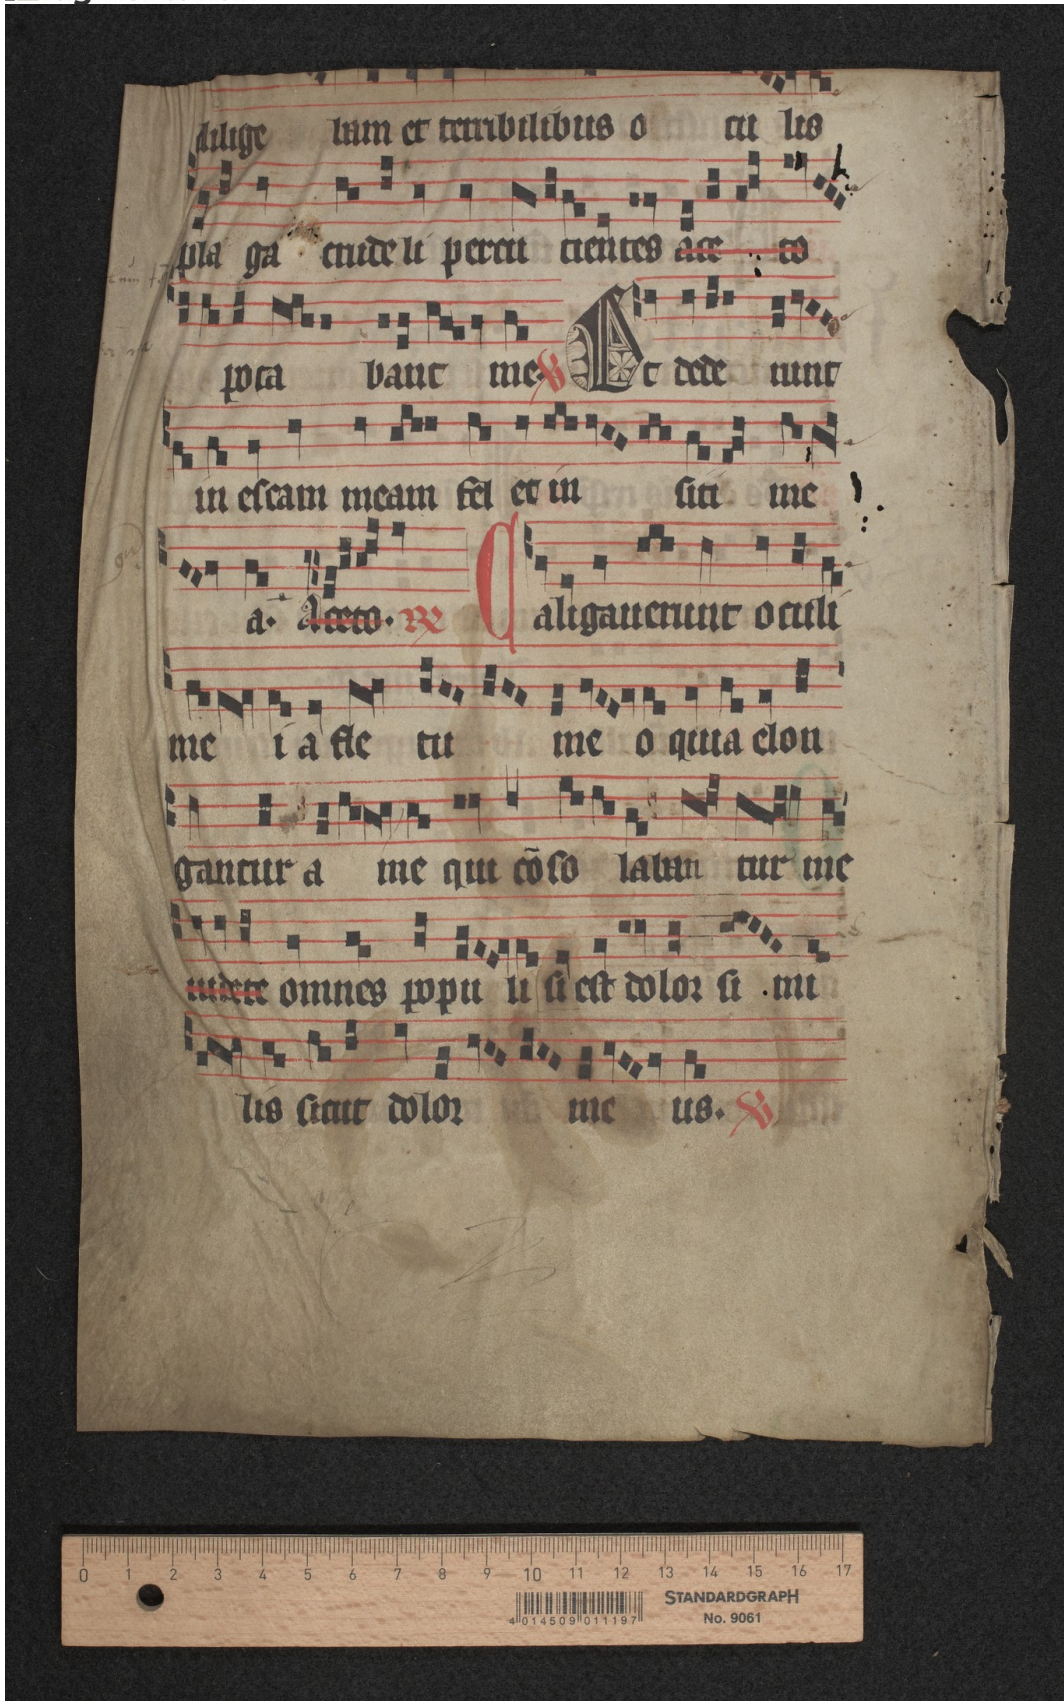 dilige bam et terribilibus o cu lis
pla ga crude li percu cientes ace to
pota bant me. V Et dede runt
in escam meam fel et in siti me
a. Aceto. R Caligauerunt oculi
me i a fle tu me o quia elon
gantur a me qui cōso laban tur me
uidete omnes popu li si est dolor si mi
lis sicut dolor me us. V
0 1 2 3 4 5 6 7 8 9 10 11 12 13 14 15 16 17
STANDARDGRAPH
4 014509 011197 No. 9061